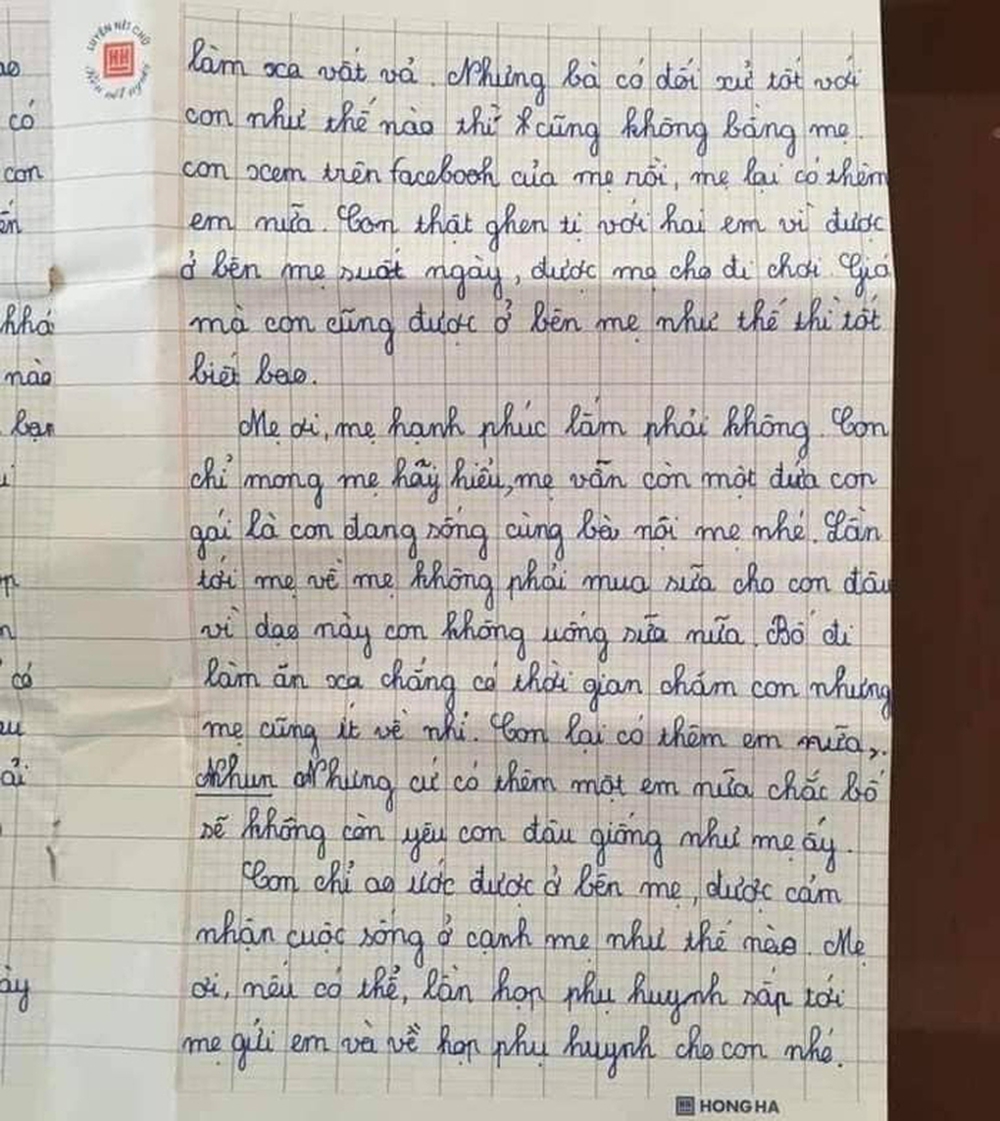 LUYỆN NÉT CHỮ
HH
Rèn nết người
làm xa vất vả. Nhưng bà có đối xử tốt với
con như thế nào thì cũng không bằng mẹ.
con xem trên facebook của mẹ rồi, mẹ lại có thêm
em nữa. Con thật ghen tị với hai em vì được
ở bên mẹ suốt ngày, được mẹ cho đi chơi. Giá
mà con cũng được ở bên mẹ như thế thì tốt
biết bao.
Mẹ ơi, mẹ hạnh phúc lắm phải không. Con
chỉ mong mẹ hãy hiểu, mẹ vẫn còn một đứa con
gái là con đang sống cùng bà nội mẹ nhé. Lần
tới mẹ về mẹ không phải mua sữa cho con đâu
vì dạo này con không uống sữa nữa. Bố đi
làm ăn xa chẳng có thời gian chăm con nhưng
mẹ cũng ít về nhỉ. Con lại có thêm em nữa,.
Nhun Nhưng cứ có thêm một em nữa chắc bố
sẽ không còn yêu con đâu giống như mẹ ấy.
Con chỉ ao ước được ở bên mẹ, được cảm
nhận cuộc sống ở cạnh mẹ như thế nào. Mẹ
ơi, nếu có thể, lần họp phụ huynh sắp tới
mẹ gửi em và về họp phụ huynh cho con nhé.
HONG HA
có
con
khá
nào
bạn
có
ải
ày